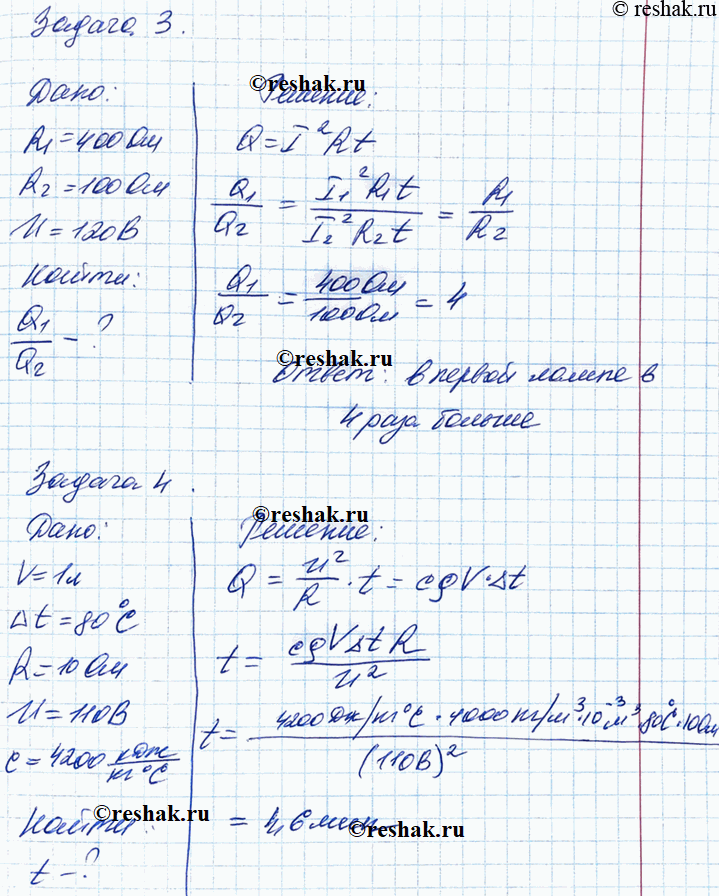 © reshak.ru
Задача 3.
Дано:
R1=400Ом
R2=100Ом
U=120В
Найти:
Q1/Q2 - ?
©reshak.ru
Решение:
Q=I²Rt
Q1/Q2 = I1²R1t/I2²R2t = R1/R2
Q1/Q2 = 400Ом/100Ом = 4
©reshak.ru
Ответ: в первой лампе в
4 раза больше
Задача 4.
Дано:
V=1л
Δt=80°C
R=10Ом
U=110В
c=4200 кДж/кг°C
Найти:
t-?
©reshak.ru
Решение:
Q = U²/R · t = cρV·Δt
t = cρVΔtR/U²
t = 4200Дж/кг°C · 1000кг/м³·10⁻³м³·80°C·10Ом/(110В)²
©reshak.ru
= 4,6мин
©reshak.ru